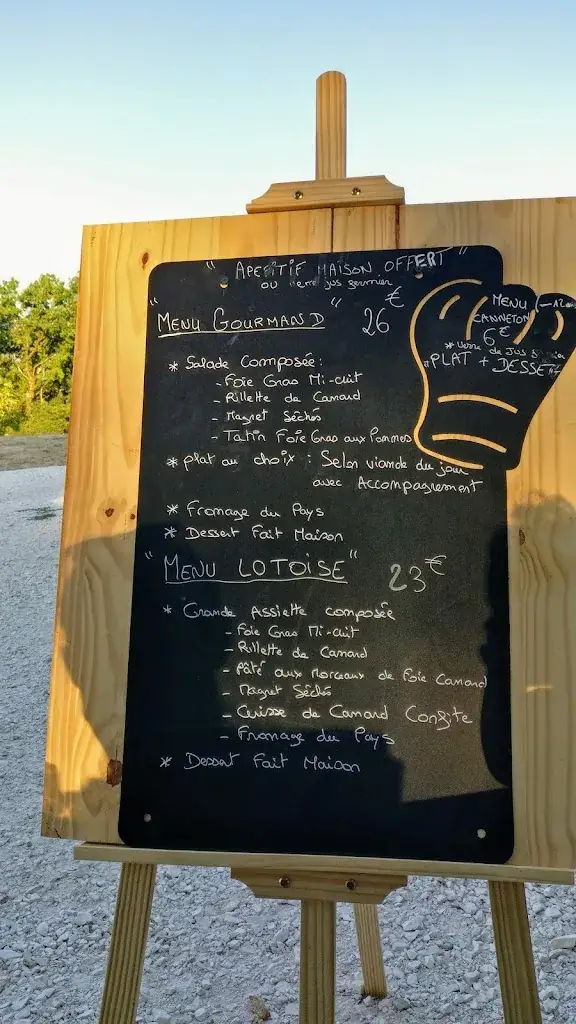 "APERITIF MAISON OFFERT"
ou
"MENU GOURMAND" 26€
* Salade Composée:
- Foie Gras Mi-cuit
- Rillette de Canard
- Magret Séchés
- Tatin Foie Gras aux Pommes
* plat au choix : Selon viande du jour
avec Accompagnement
* Fromage du Pays
* Dessert Fait Maison
"MENU LOTOISE" 23€
* Grande Assiette composée
- Foie Gras Mi-cuit
- Rillette de Canard
- Pâté aux Morceaux de Foie Canard
- Magret Séché
- Cuisse de Canard Confite
- Fromage du Pays
* Dessert Fait Maison
MENU
CANNETON
6€
* Verre de Jus
PLAT + DESSERT